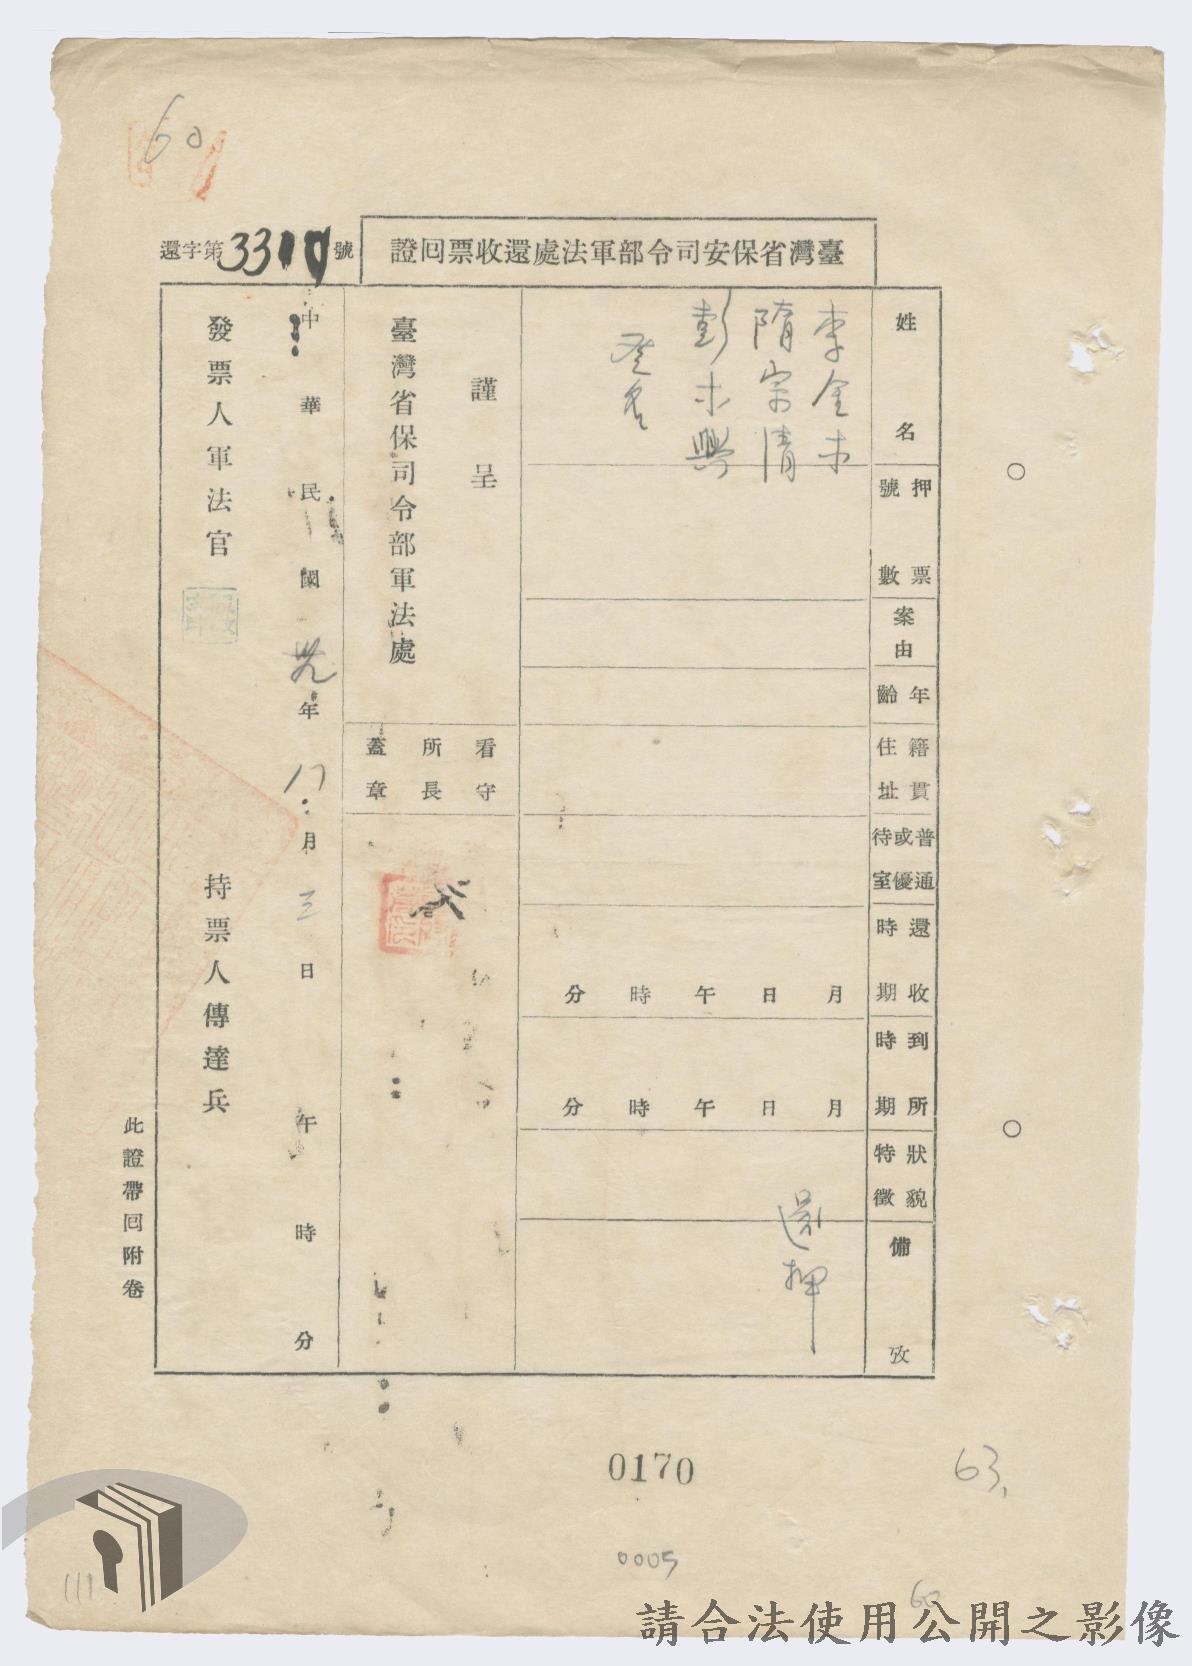 60
臺灣省保安司令部軍法處還收票回證
還字第3310號
姓名
押票號數
案由
年齡
籍貫住址
普通或優待室
還收時期
到所時期
狀貌特徵
備攷
李金木
隋宗清
彭木興
叁名
月 日 午 時 分
月 日 午 時 分
還押
謹呈
臺灣省保司令部軍法處
看守所長蓋章
中華民國卅九年八月三日午時分
發票人軍法官
持票人傳達兵
此證帶回附卷
0170
63.
0005
60
111
請合法使用公開之影像